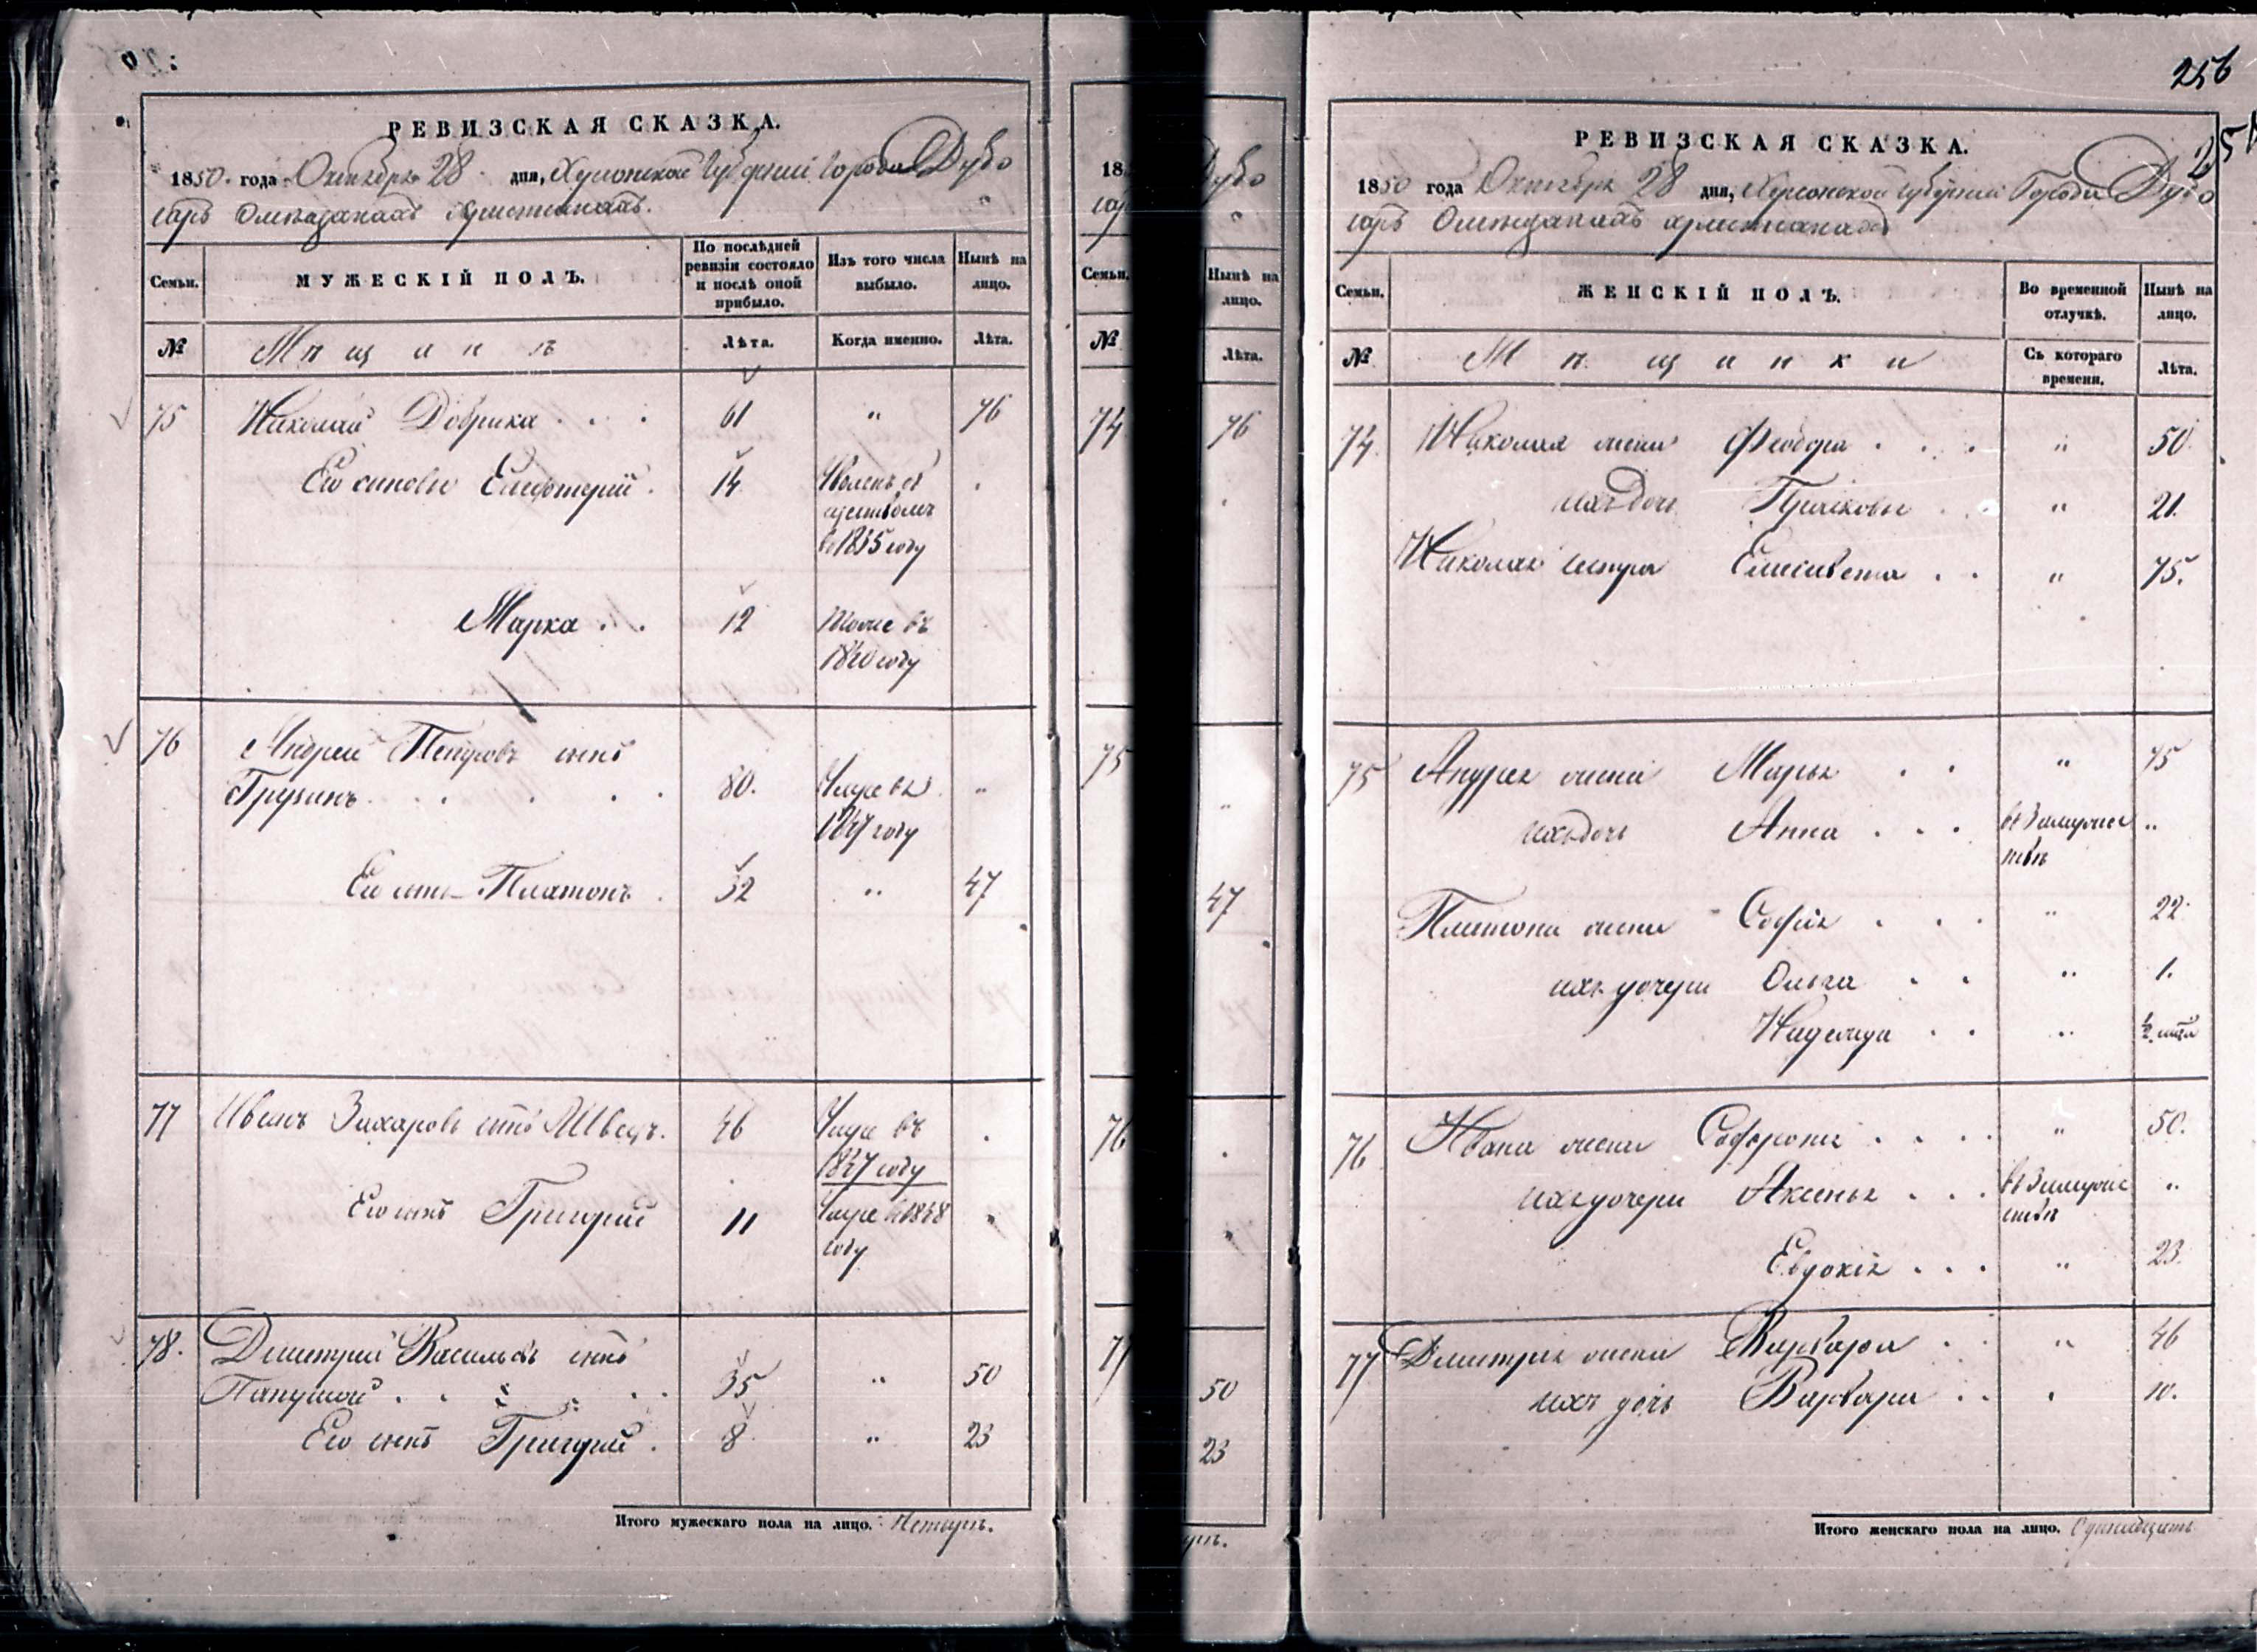 РЕВИЗСКАЯ СКАЗКА.
1850 года Октября 28 дня, Херсонской Губерніи Города Дубо
саръ О мещанахъ христианахъ.
Семьи. МУЖЕСКІЙ ПОЛЪ. По послѣдней ревизіи состояло и послѣ оной прибыло. Изъ того числа выбыло. Нынѣ на лицо.
№ Мѣщанъ Лѣта. Когда именно. Лѣта.
75 Николай Добрика 61 " 76
Его сыновья Елефтерій 14
в 1835 году
Марка 12 тоже въ
1840 году
76 Андрей Петровъ сынъ
Грузинъ 80. Умре въ "
1847 году
Его сынъ Платонъ 32 " 47
77 Иванъ Захаровъ сынъ Швецъ. 46 Умре въ
1847 году
Его сынъ Григорий 11 Умре въ 1838 "
году
78. Дмитрий Васильевъ сынъ
35 " 50
Его сынъ Григорий 8 " 23
Итого мужескаго пола на лицо. Четыре.
18
Дубо
сар
Семьи. Нынѣ на лицо.
№ Лѣта.
74 76
75 "
47
76
77 50
23
256
РЕВИЗСКАЯ СКАЗКА.
1850 года Октября 28 дня, Херсонской Губерніи Города Дубо
саръ О мещанахъ христианахъ
Семьи. ЖЕНСКІЙ ПОЛЪ. Во временной отлучкѣ. Нынѣ на лицо.
№ Мѣщанки Съ котораго времени. Лѣта.
74. Николая жена Феодора " 50
ихъ дочь " 21.
Николая сестра Елисавета " 75.
75 Андрея жена Марья " 75
ихъ дочь Анна въ замужес "
твѣ
Платона жена Софія " 22.
ихъ дочери Ольга " 1.
Надежда " ½
76 Ивана жена Софрония " 50.
ихъ дочери Аксенья въ замужес "
твѣ
Евдокія " 23.
77 Дмитрія жена Варвара " 46
ихъ дочь Варвара " 10.
Итого женскаго пола на лицо. Одинадцать